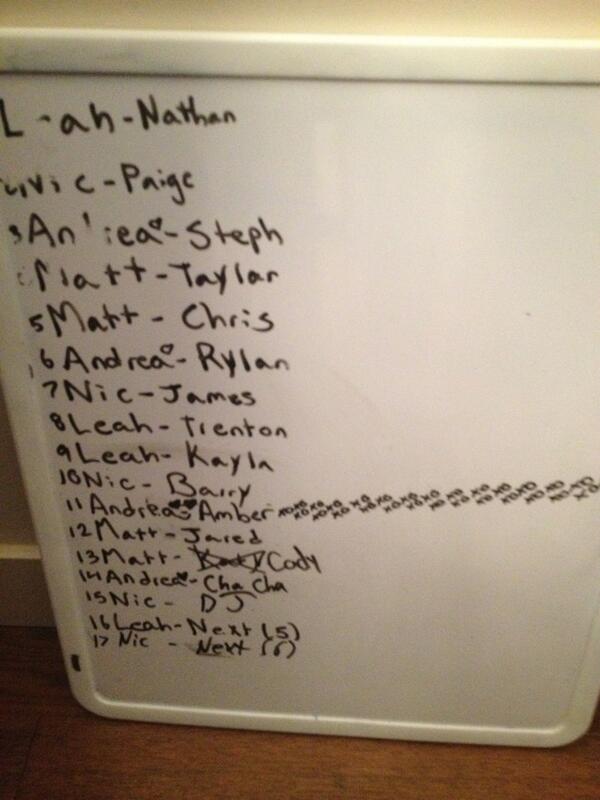 L-ah-Nathan
Nic-Paige
3 An'rea-Steph
Matt-Taylar
5 Matt-Chris
6 Andrea-Rylan
7 Nic-James
8 Leah-Trenton
9 Leah-Kayla
10 Nic-Barry
11 Andrea-Amber xoxoxoxoxoxoxoxoxoxoxoxoxoxoxo
12 Matt-Jared
13 Matt-Cody
14 Andrea-Cha Cha
15 Nic-DJ
16 Leah-Next (5)
17 Nic-Next (6)